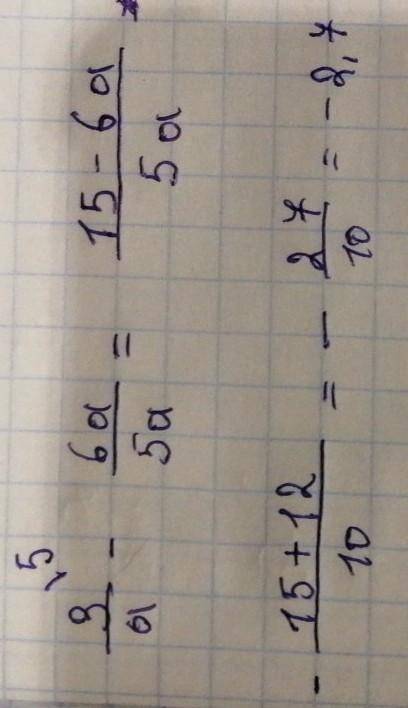 3\5/a - 6a/5a = 15-6a/5a
- 15+12/10 = - 27/10 = -2,7